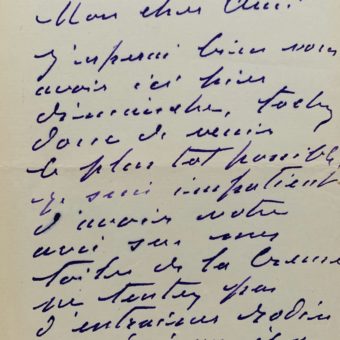 Mon cher Ami
j'esperai bien vous
avoir ici hier
dimanche, tachez
donc de venir
le plus tot possible,
je suis impatient
d'avoir votre
avis sur mes
toiles de la Creuse
ne tentez pas
d'entrainer Rodin